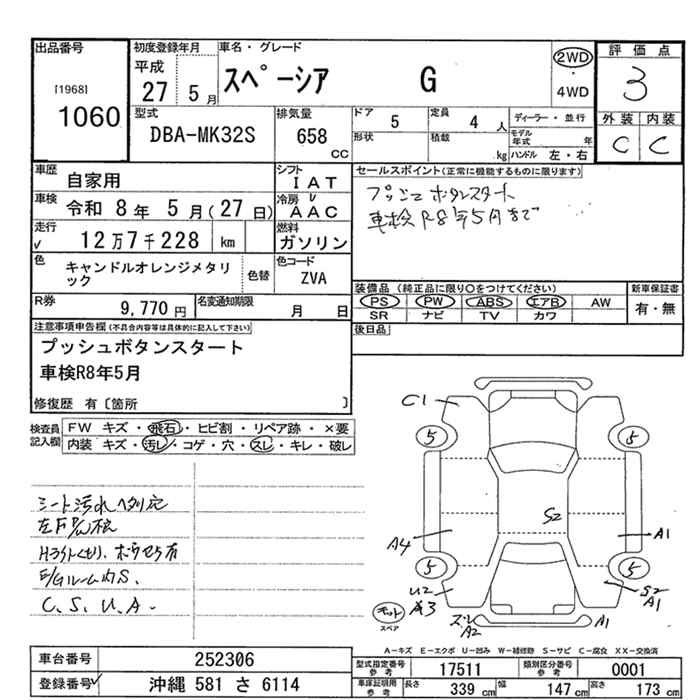 出品番号
[1968]
1060
初度登録年月
平成
27 5 月
車名・グレード
スペーシア G
2WD
・
4WD
評価点
3
外装 内装
C C
型式
DBA-MK32S
排気量
658
CC
ドア 5
定員 4 人
ディーラー・並行
形状
積載 kg
モデル年式 年
ハンドル 左・右
車歴
自家用
シフト
IAT
車検
令和 8 年 5 月(27 日)
冷房
AAC
走行
12 万 7 千 228 km
燃料
ガソリン
色
キャンドルオレンジメタリック
色替
色コード
ZVA
R券
9,770 円
名変通知期限
月 日
セールスポイント(正常に機能するものに限ります)
プッシュボタンスタート
車検R8年5月まで
装備品(純正品に限り○をつけてください)
新車保証書
PS PW ABS エアB AW
SR ナビ TV カワ
有・無
後日品
注意事項申告欄(不具合内容等は具体的に記入して下さい)
プッシュボタンスタート
車検R8年5月
修復歴 有〔箇所 〕
検査員記入欄
FW キズ・飛石・ヒビ割・リペア跡・×要
内装 キズ・汚レ・コゲ・穴・スレ・キレ・破レ
シート汚れ
C、S、U、A.
C1
5
5
S2
A4
A1
5
5
U2
A3
S2
A1
スペア
A2
A1
A-キズ E-エクボ U-凹み W-補修跡 S-サビ C-腐食 XX-交換済
車台番号
252306
登録番号
沖縄 581 さ 6114
型式指定番号
参考
17511
類別区分番号
参考
0001
車庫証明用
参考
長さ 339 cm
幅 147 cm
高さ 173 cm